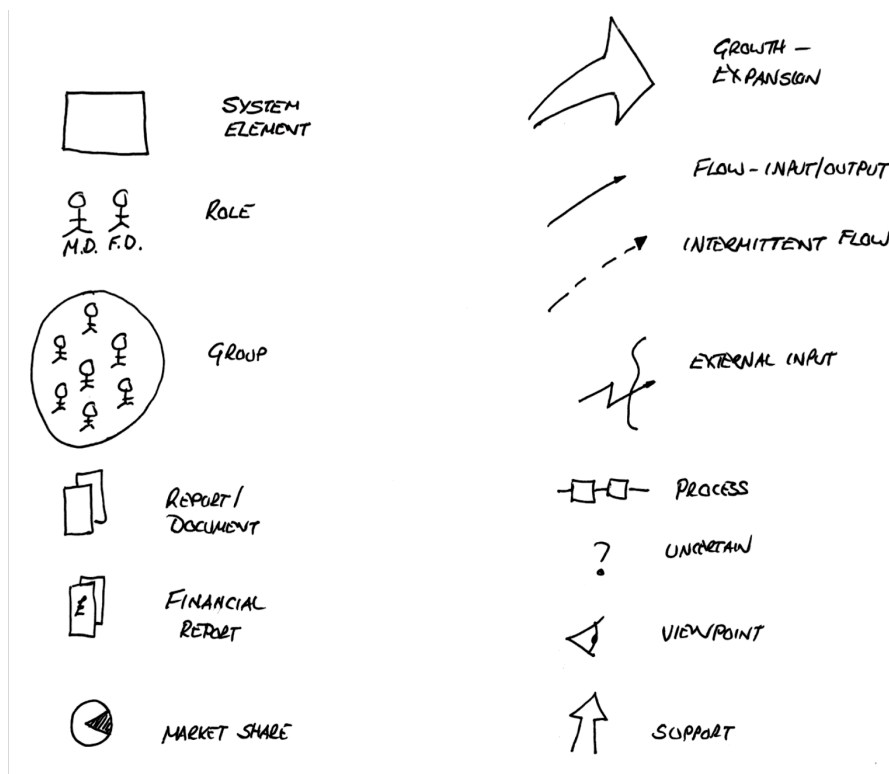 SYSTEM
ELEMENT
M.D. F.D.
ROLE
GROUP
REPORT/
DOCUMENT
£
FINANCIAL
REPORT
MARKET SHARE
GROWTH –
EXPANSION
FLOW – INPUT/OUTPUT
INTERMITTENT FLOW
EXTERNAL INPUT
PROCESS
?
UNCERTAIN
VIEWPOINT
SUPPORT